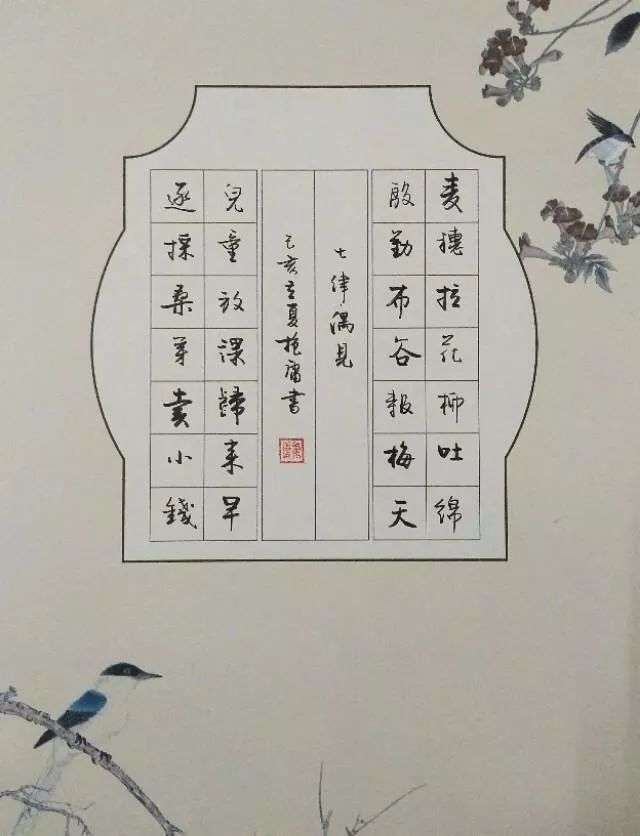 麦穗拉花柳吐綿
殷勤布谷報梅天
七律偶見
己亥立夏抱庸書
兒童放課歸来早
逐採桑芽賣小錢